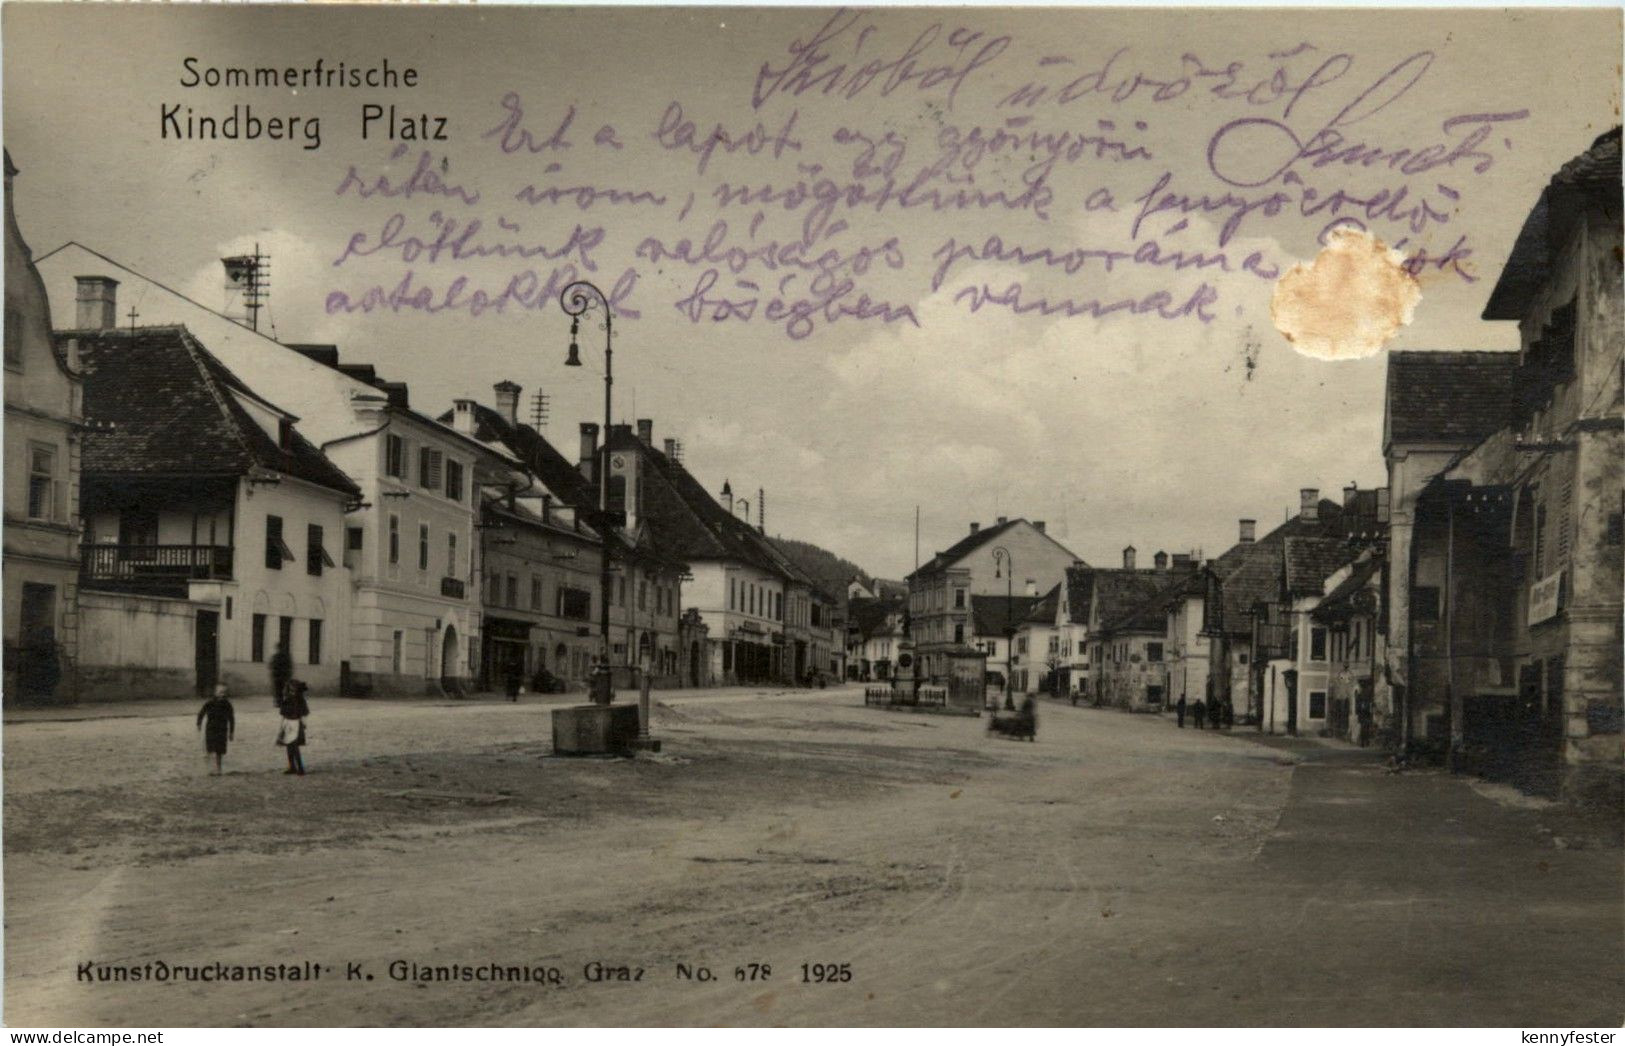 Sommerfrische
Kindberg Platz
Szivből üdvözöl
Ezt a lapot egy gyönyörü
rétén irom, mögöttünk a fenyőerdő
előttünk valóságos panoráma
asztalokkal bőségben vannak.
Kunstdruckanstalt K. Glantschnigg Graz No. 678 1925
delcampe.net
kennyfester